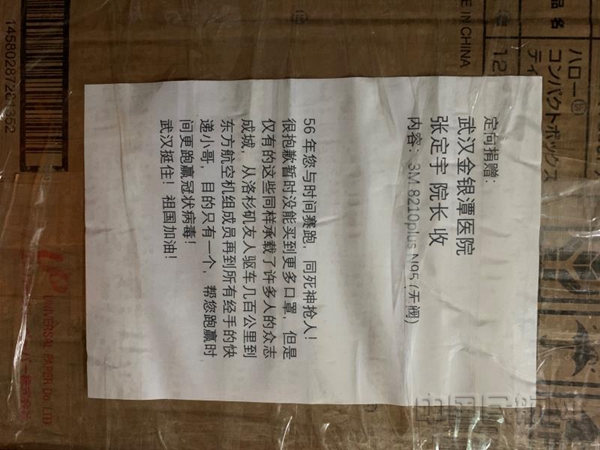 定向捐赠：
武汉金银潭医院
张定宇 院长 收
内容：3M 8210plus N95 (无阀)
56 年您与时间赛跑，同死神抢人！
很抱歉暂时没能买到更多口罩，但是
仅有的这些同样承载了许多人的众志
成城，从洛杉矶友人驱车几百公里到
东方航空机组成员再到所有经手的快
递小哥，目的只有一个，帮您跑赢时
间更跑赢冠状病毒！
武汉挺住！祖国加油！
品名
ハロー
コンパクトボックス
ティ
12
MADE IN CHINA